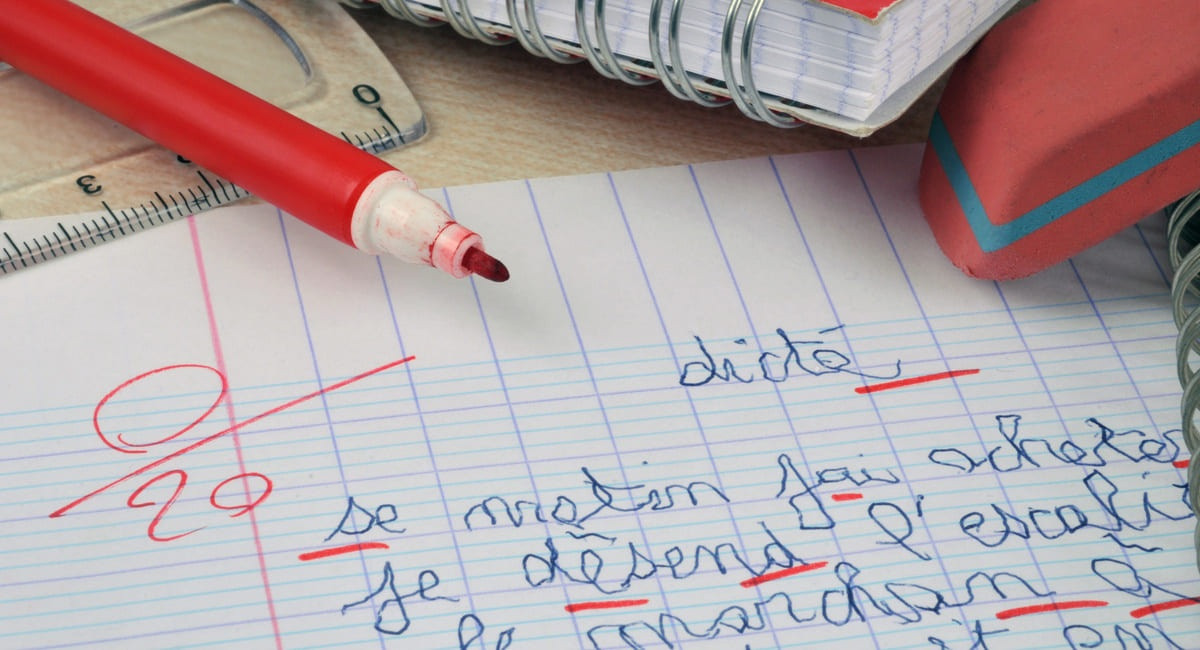 0
3
0
20
dicté
se matin jai acheté
je désend l'escali
le marchan à